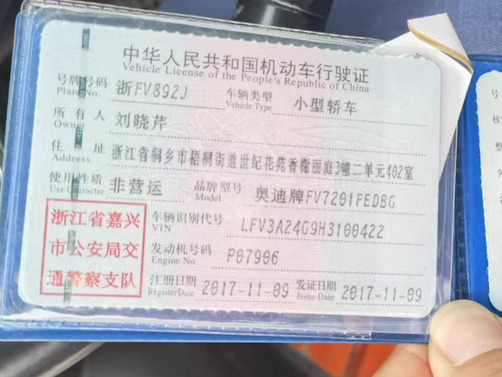 中华人民共和国机动车行驶证
Vehicle License of the People's Republic of China
号牌号码 浙FV892J 车辆类型 小型轿车
Plate No. Vehicle Type
所有人 刘晓芹
Owner
住址 浙江省桐乡市梧桐街道世纪花苑香榭丽庭3幢二单元402室
Address
使用性质 非营运 品牌型号 奥迪牌FV7201FEDBG
Use Character Model
浙江省嘉兴
市公安局交
通警察支队
车辆识别代号 LFV3A24G9H3100422
VIN
发动机号码 P07906
Engine No.
注册日期 2017-11-09 发证日期 2017-11-09
Register Date Issue Date